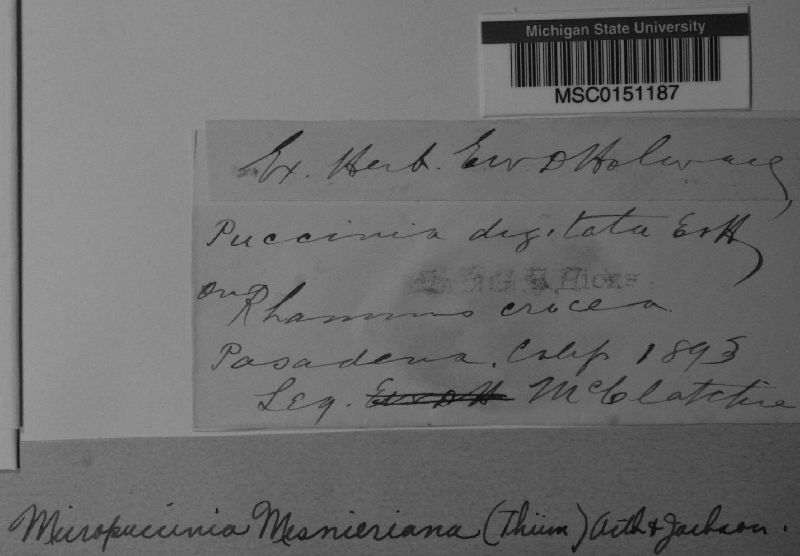 Michigan State University
MSC0151187
Ex. Herb. Ew D Holway
Puccinia digitata E & H
G. H. Hicks
on Rhamnus crocea
Pasadena. Calif 1893
Leg. Ew D H McClatchie
Micropuccinia Mesnieriana (Thüm) Arth & Jackson.